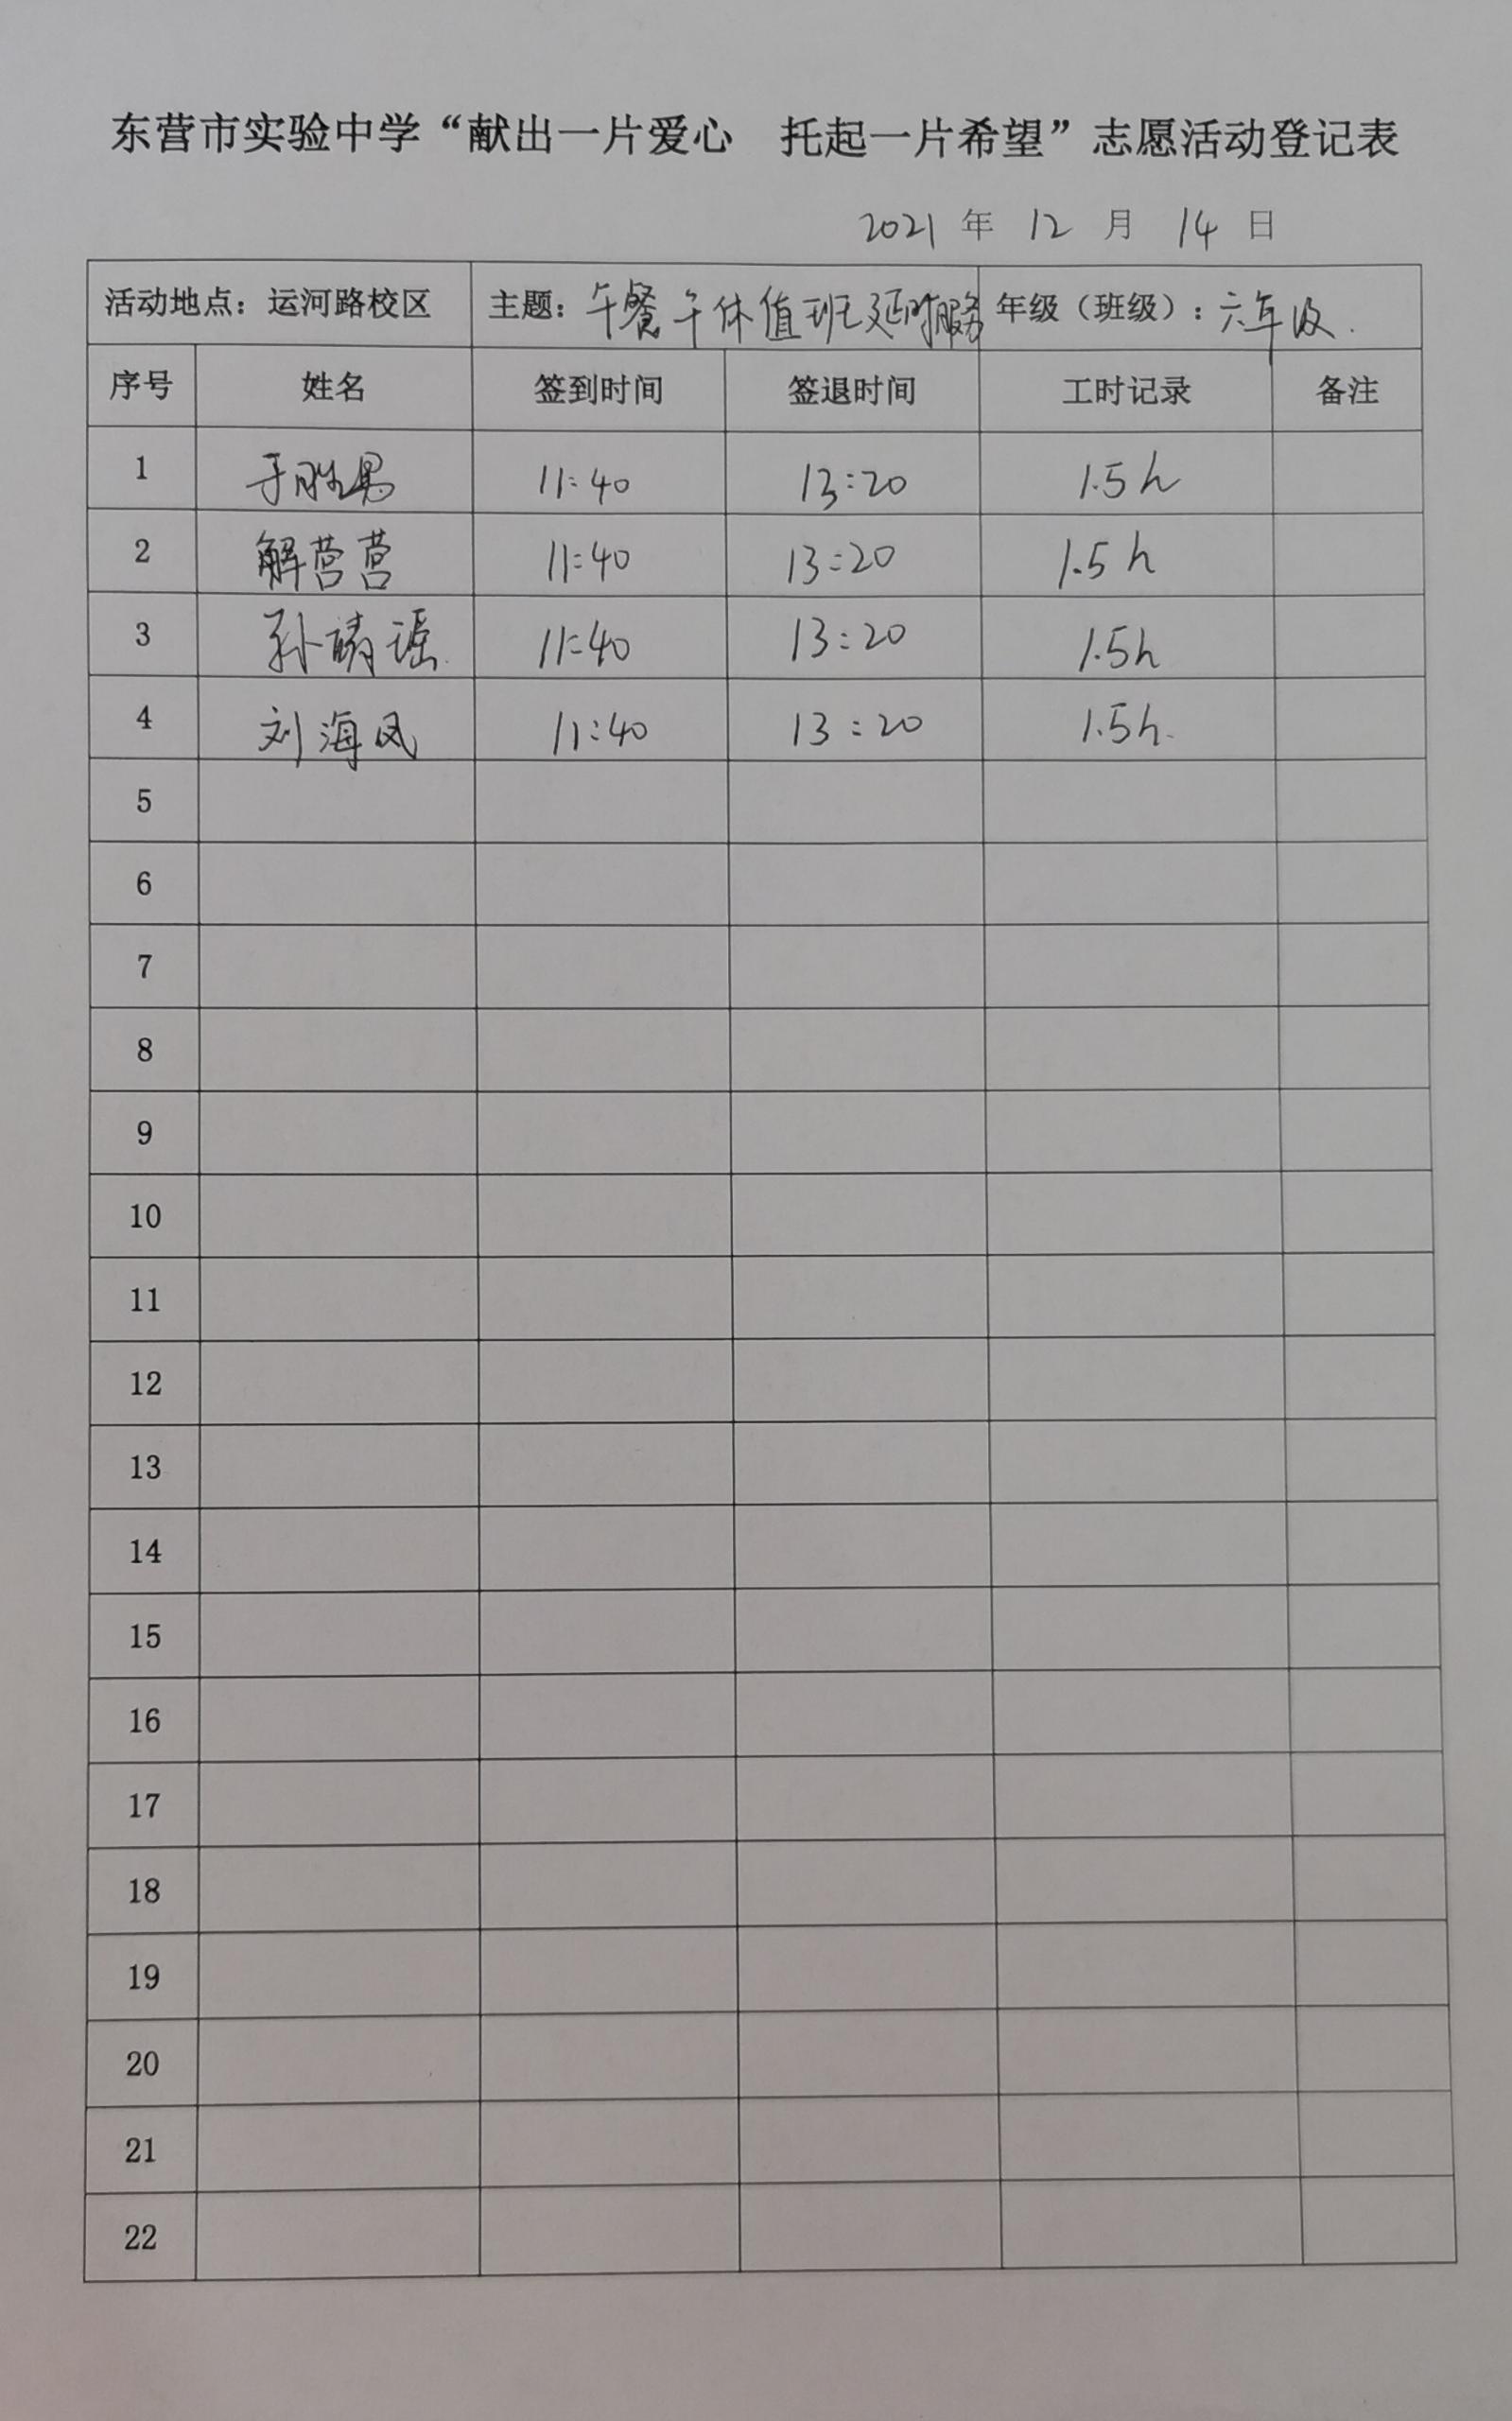 东营市实验中学“献出一片爱心 托起一片希望”志愿活动登记表
2021 年 12 月 14 日
活动地点：运河路校区 主题：午餐午休值班延时服务 年级（班级）：六年级.
序号 姓名 签到时间 签退时间 工时记录 备注
1 于胜男 11:40 13:20 1.5h
2 解营营 11:40 13:20 1.5h
3 孙靖瑶. 11:40 13:20 1.5h
4 刘海凤 11:40 13:20 1.5h.
5
6
7
8
9
10
11
12
13
14
15
16
17
18
19
20
21
22